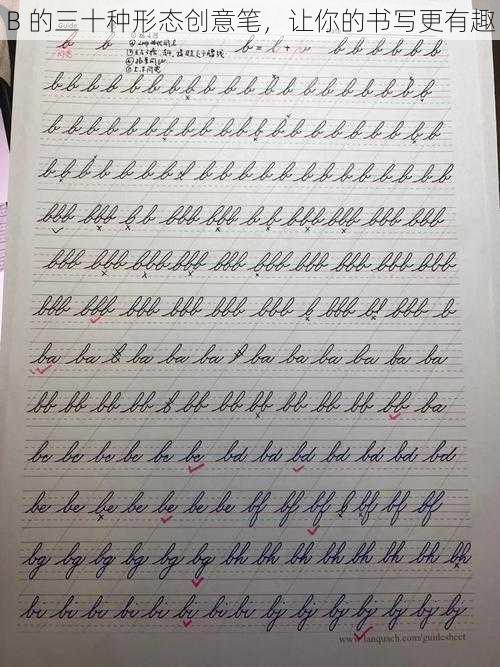 B 的二十种形态创意笔，让你的书写更有趣
Guide
b b b = l + b b b b b
b b b b b b b b b b b b b b b b b b b b b
b b b b b b b b b b b b b b b b b b b b b b
b b b b b b b b b b b b b b b b b b b b b
bbb bbb b b bbb bbb b b bbb bbb bbb bbb
bbb bbb bbb bbb bbb bbb bbb bbb bbb bbb
bbb bbb bbb bbb bbb bbb b bbb b bbb b
ba ba b ba ba ba b ba ba ba ba ba ba
bb bb bb bb b bb bb bb bb bb bb bb ba
bc bc bc bc bc bc bd bd bd bd bd bd bd
be be be be be be be bf bf bf b bf bf bf
bg bg bg bg bg bg bh bh bh bh bh bh bh
bi bi bi bi bi bi bi bj bj bj bj bj bj
www.lanquach.com/guidesheet